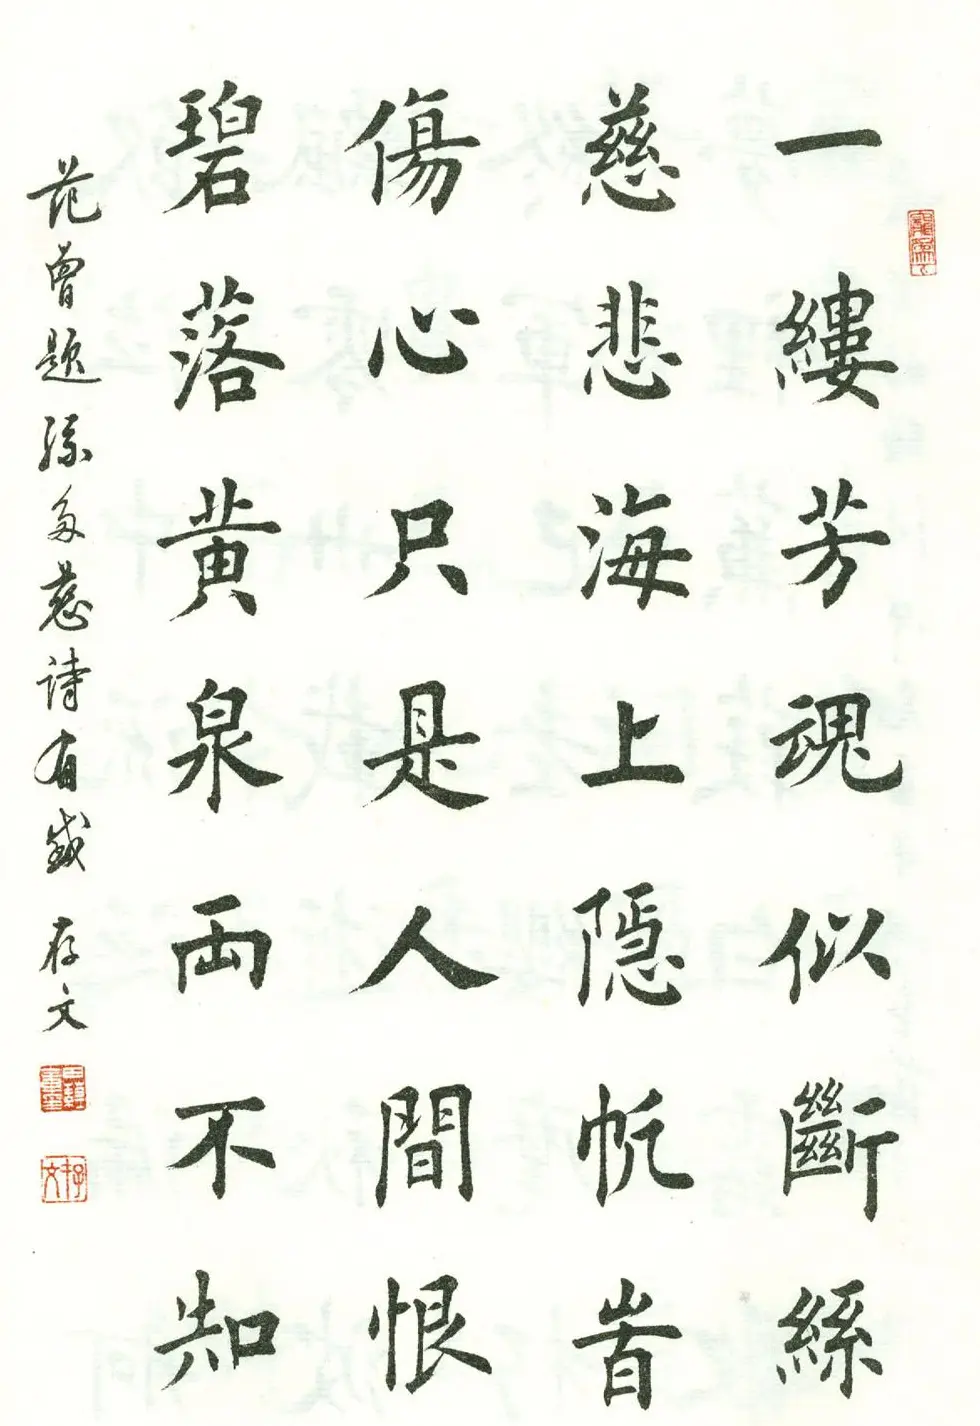 一縷芳魂似斷絲
慈悲海上隐帆旹
傷心只是人間恨
碧落黄泉両不知
范曾题孫多慈詩有感 存文
存文